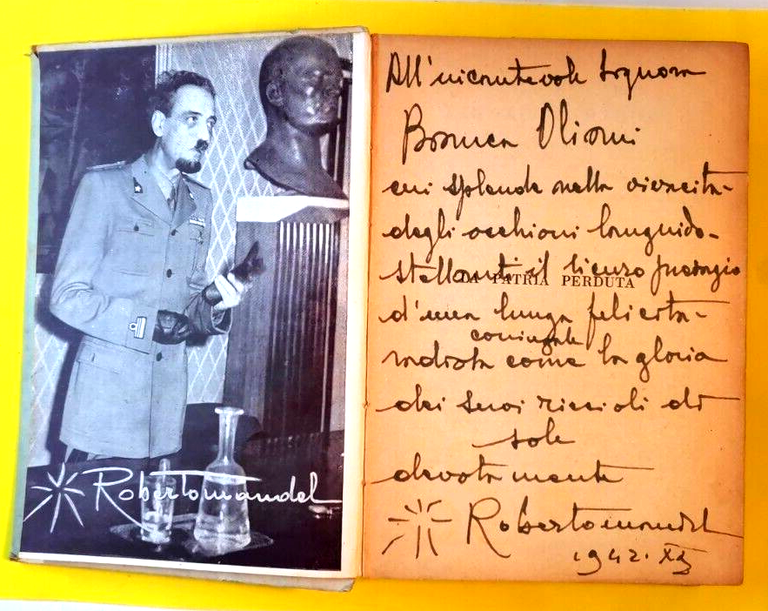 Robertomandel
All'incantevole Signora
Bianca Oliani
cui splende nella vivacità
degli occhioni languido-
stellanti il sicuro presagio
LA PATRIA PERDUTA
d'una lunga felicità
coniugale
radiosa come la gloria
dei suoi riccioli di
sole
devotamente
Robertomandel
1942. XX